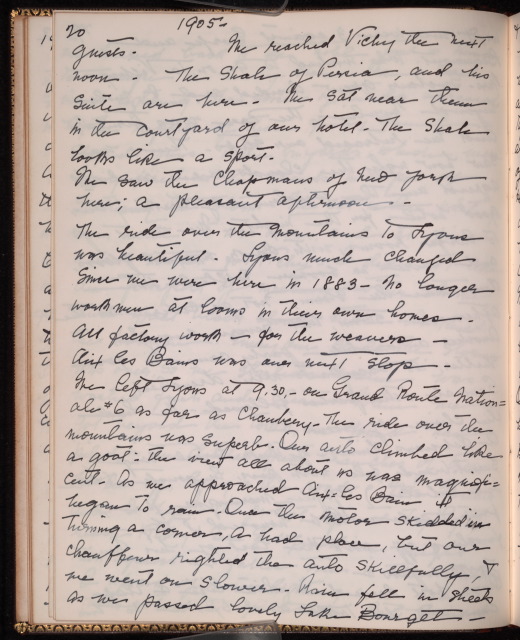 20 1905-
guests. We reached Vichy the next
noon. The Shah of Persia, and his
suite are here. We sat near them
in the courtyard of our hotel. The Shah
looks like a sport.
We saw the Chapmans of New York
here; a pleasant afternoon.
The ride over the mountains to Lyons
was beautiful. Lyons much changed
since we were here in 1883- No longer
workmen at looms in their own homes.
All factory work - for the weavers -
Aix les Bains was our next stop -
We left Lyons at 9.30,- on Grand Route Nation=
ale #6 as far as Chambery. The ride over the
mountains was superb. Our auto climbed like
a goat. The view all about us was magnifi=
cent. As we approached Aix-les Bain it
began to rain. Once the motor skidded in
turning a corner, a bad place, but our
chauffeur righted the auto skillfully, &
we went on slower. Rain fell in sheets
as we passed lovely Lake Bourget -